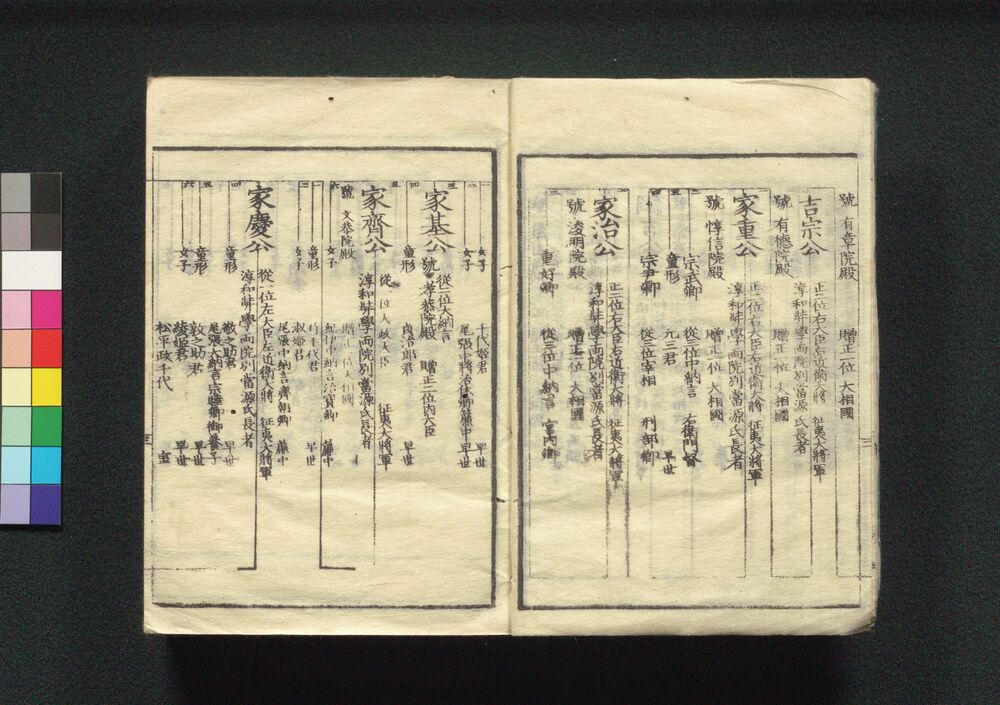 號 有章院殿 贈正一位 大相國
吉宗公 正二位右大臣右近衛大將 征夷大將軍
淳和奬學両院別當源氏長者
號 有德院殿 贈正一位 大相國
家重公 正二位右大臣右近衛大將 征夷大將軍
淳和奬學両院別當源氏長者
號 惇信院殿 贈正一位 大相國
二 宗武卿 從三位中納言 右衛門督
三 童形 元三君 早世
四 宗尹卿 從三位宰相 刑部卿
家治公 正二位右大臣右近衛大將 征夷大將軍
淳和奬學両院別當源氏長者
號 浚明院殿 贈正一位 大相國
二 重好卿 從三位中納言 宮内卿
一 女子 千代姬君 早世
二 女子 尾張中將治休卿簾中 早世
三 家基公 從二位大納言
號 孝恭院殿 贈正二位内大臣
四 童形 貞治郎君 早世
五
家齊公 從一位太政大臣 征夷大將軍
淳和奬學両院別當源氏長者
號 文恭院殿 贈正一位大相國
一 女子 紀伊中納言治寶卿 簾中
二 童形 竹千代君 早世
三 女子 淑姬君
尾張中納言齊朝卿 簾中
家慶公 從一位左大臣左近衛大將 征夷大將軍
淳和奬學両院別當源氏長者
四 童形 敬之助君 早世
尾張大納言宗睦卿御養子
五 童形 敦之助君 早世
六 女子 綾姬君 早世
松平政千代 室